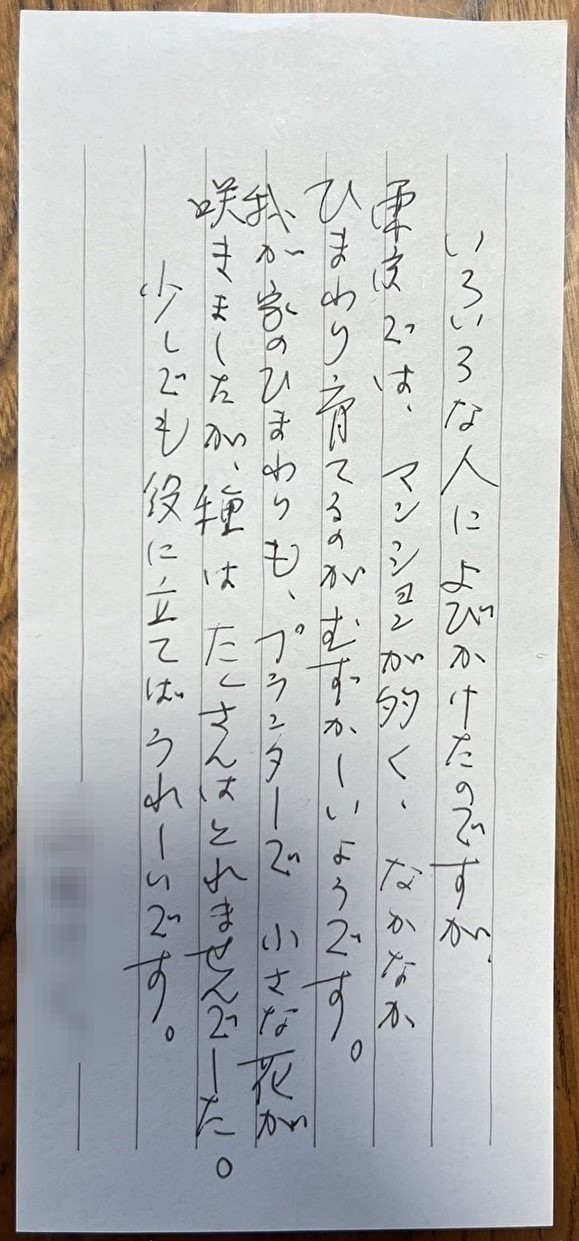 いろいろな人によびかけたのですが、
東京では、マンションが多く、なかなか
ひまわり育てるのがむずかしいようです。
我が家のひまわりも、プランターで小さな花が
咲きましたが、種はたくさんはとれませんでした。
少しでも役に立てばうれしいです。